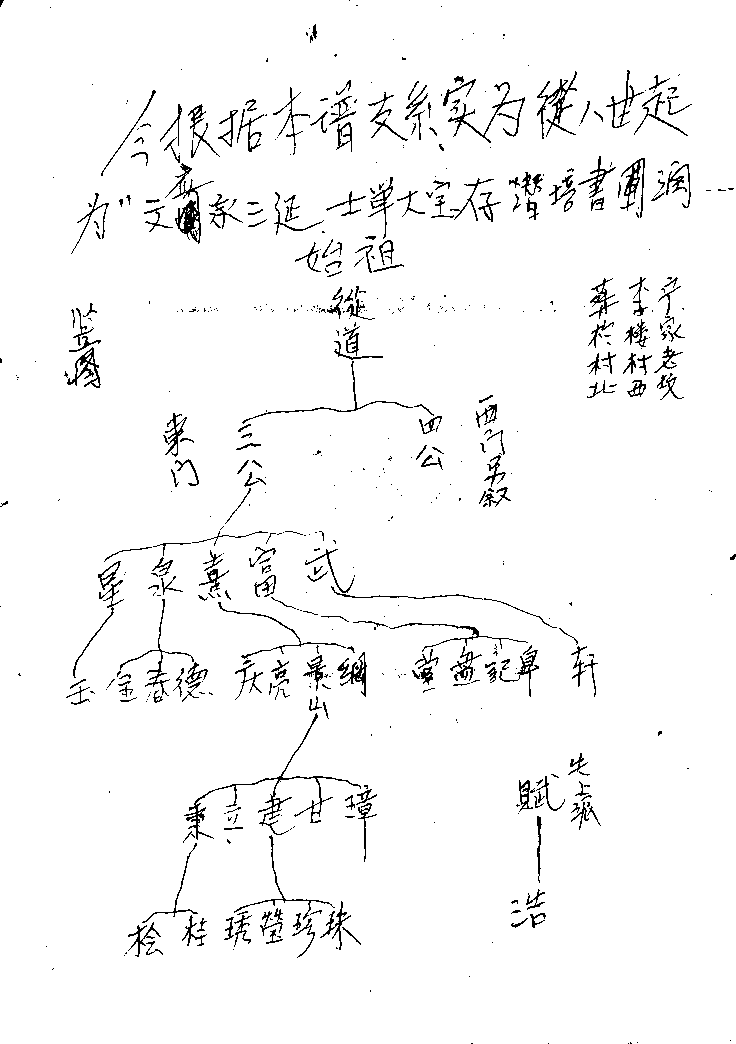 今根据本谱支系实为從八世起
为"文 永三延 士单大宝存 培書 润
始祖
從道
宁家老坟
李楼村西
葬於村北
竖图
東门
三公
四公
西门另叙
星 泉 熹 富 武
玉 金春德 庆亮景山綱 堂盘記阜 轩
秉立建甘璋
賦
失上派
浩
桧 桂 琇瑩珍珠